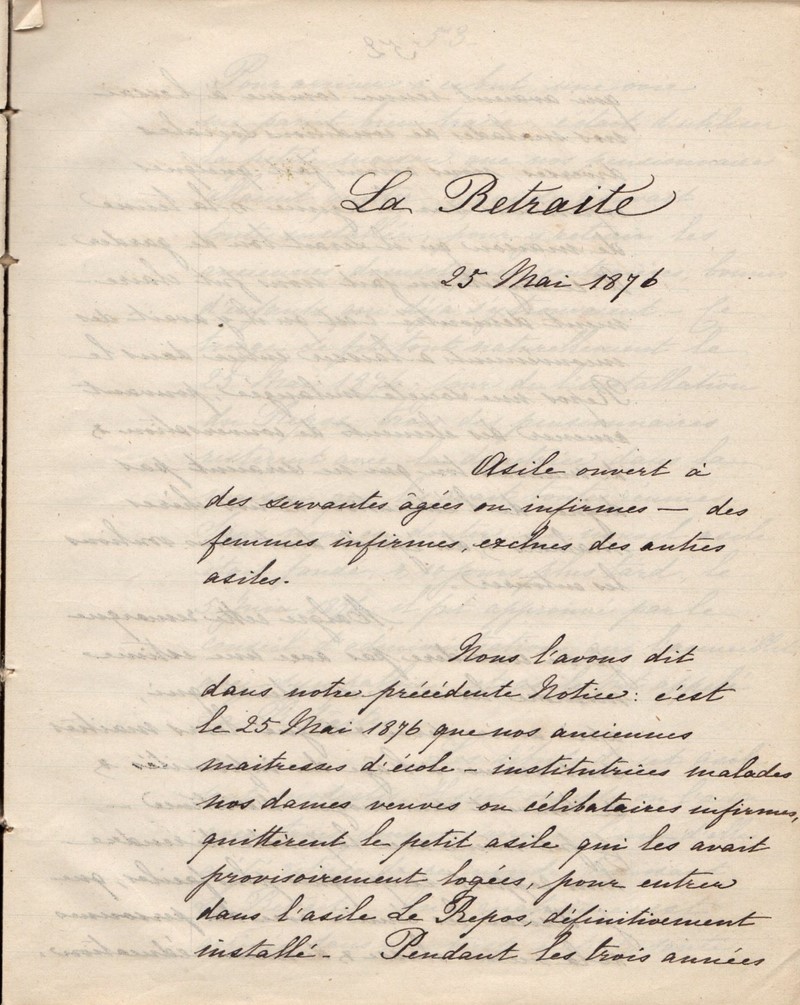 La Retraite
25 Mai 1876
Asile ouvert à
des servantes âgées ou infirmes — des
femmes infirmes, exclues des autres
asiles.
Nous l'avons dit
dans notre précédente Notice: c'est
le 25 Mai 1876 que nos anciennes
maitresses d'école – institutrices malades
nos dames veuves ou célibataires infirmes,
quittèrent le petit asile qui les avait
provisoirement logées, pour entrer
dans l'asile Le Repos, définitivement
installé – Pendant les trois années